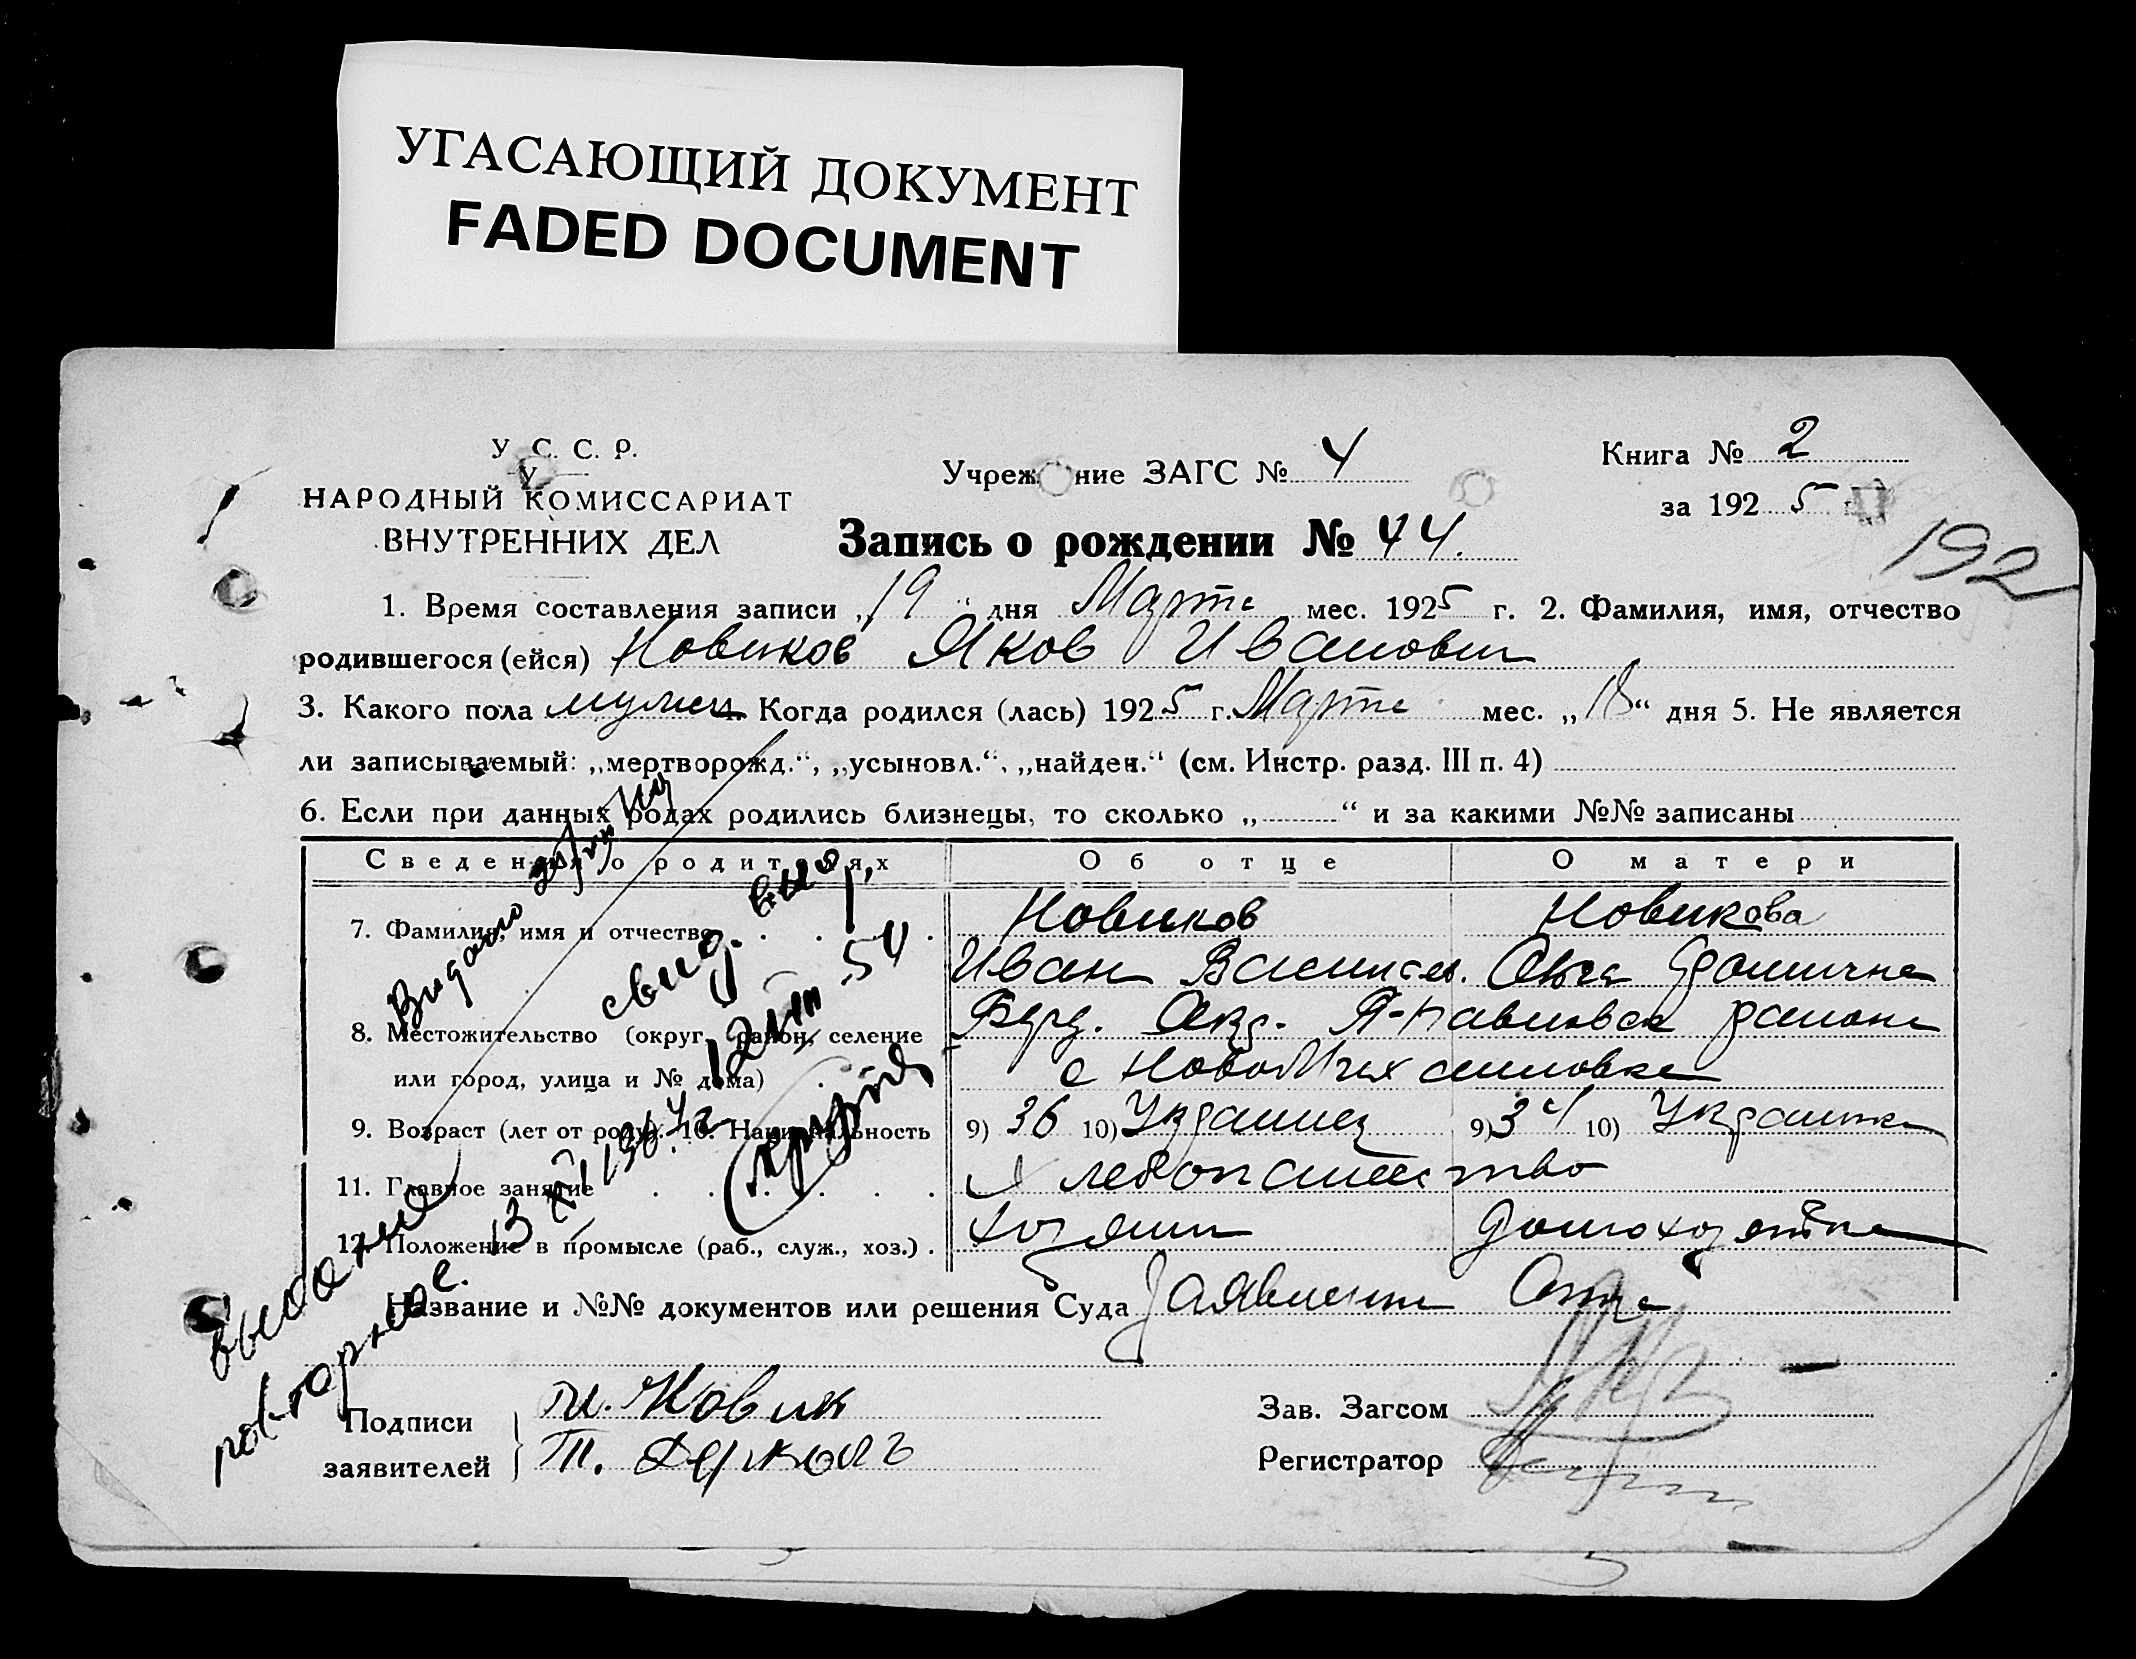 УГАСАЮЩИЙ ДОКУМЕНТ
FADED DOCUMENT
У. С. С. Р.
НАРОДНЫЙ КОМИССАРИАТ
ВНУТРЕННИХ ДЕЛ
Учреждение ЗАГС № 4
Книга № 2
за 1925
Запись о рождении № 44.
192
1. Время составления записи „19“ дня Марта мес. 1925 г. 2. Фамилия, имя, отчество
родившегося (ейся) Новиков Яков Иванович
3. Какого пола мужск 4. Когда родился (лась) 1925 г. Марта мес. „18“ дня 5. Не является
ли записываемый: „мертворожд.“, „усыновл.“, „найден.“ (см. Инстр. разд. III п. 4)
6. Если при данных родах родились близнецы, то сколько „ “ и за какими №№ записаны
Сведения о родителях Об отце О матери
7. Фамилия, имя и отчество Новиков Новикова
Иван Васильев. Ольга
8. Местожительство (округ, район, селение Окр. района
или город, улица и № дома) с
9. Возраст (лет от роду). 10. Национальность 9) 36 10) Украинец 9) 34 10) Украинка
11. Главное занятие Хлебопашество
12. Положение в промысле (раб., служ., хоз.) хозяин домохозяйка
Название и №№ документов или решения Суда Заявление Отца
Подписи
заявителей
Зав. Загсом
Регистратор
Видано
свид. 54
выдано
повторное.